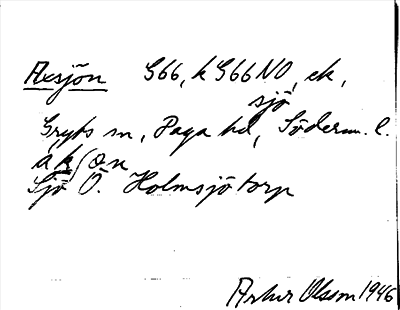 Axsjön G66, k G66 NO, ek,
sjö
Gryts sn, Daga hd, Söderm. l.
ak(s)ọ̈n
Sjö Ö. Holmsjötorp
Artur Olsson 1946